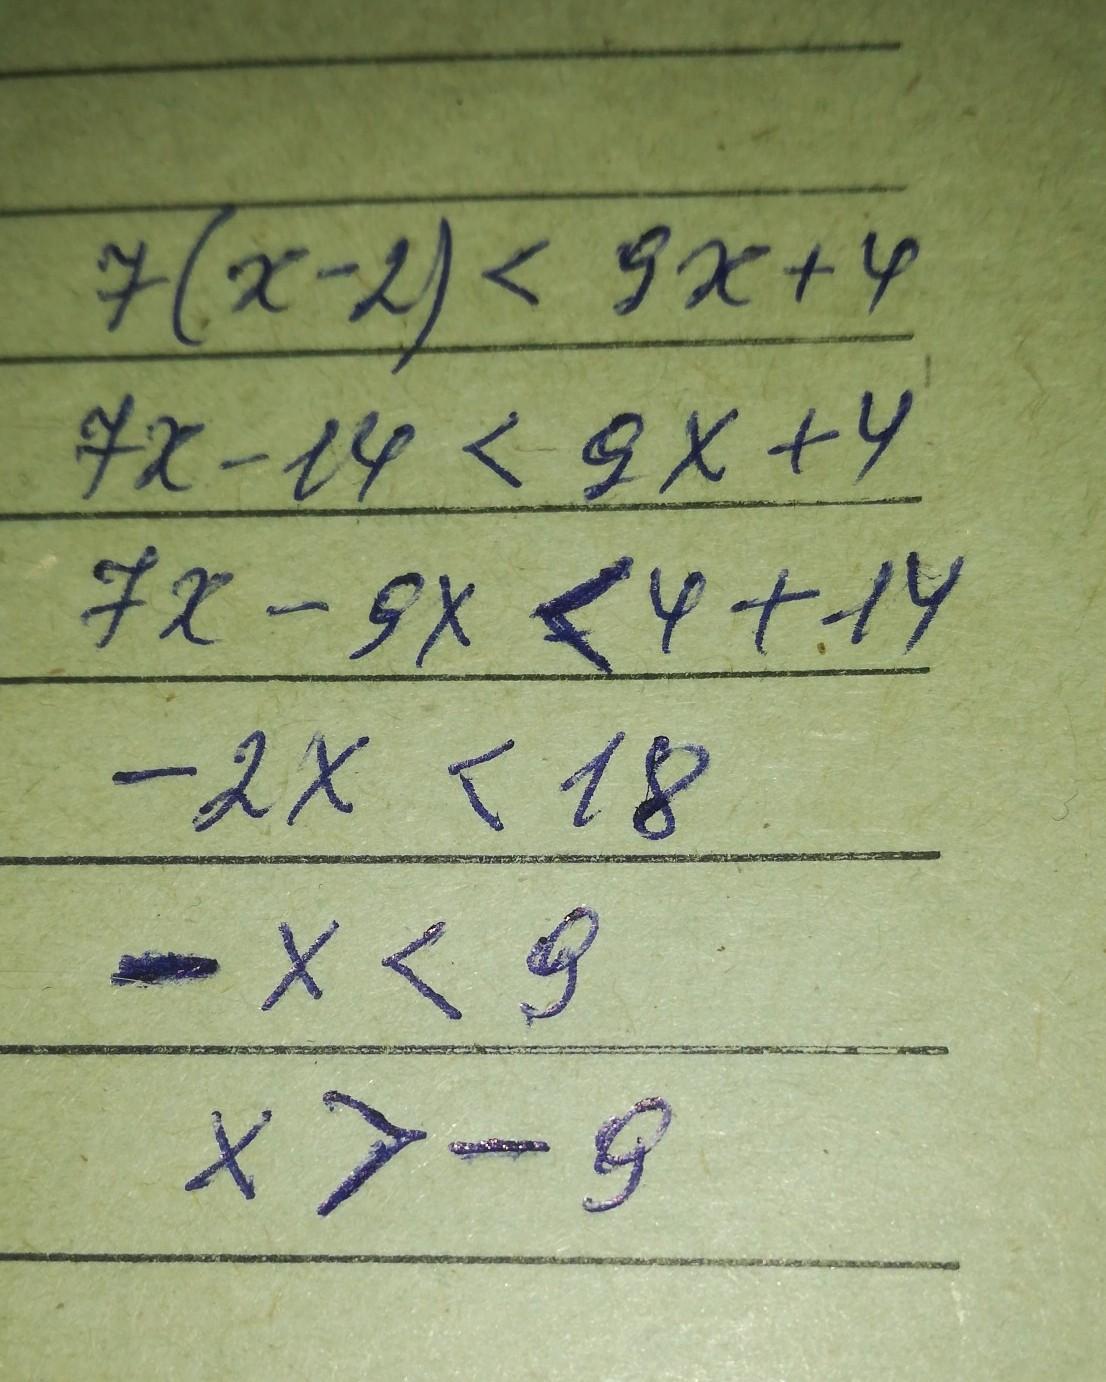 7(x-2) < 9x+4
7x-14 < 9x+4
7x-9x < 4+14
-2x < 18
-x < 9
x > -9